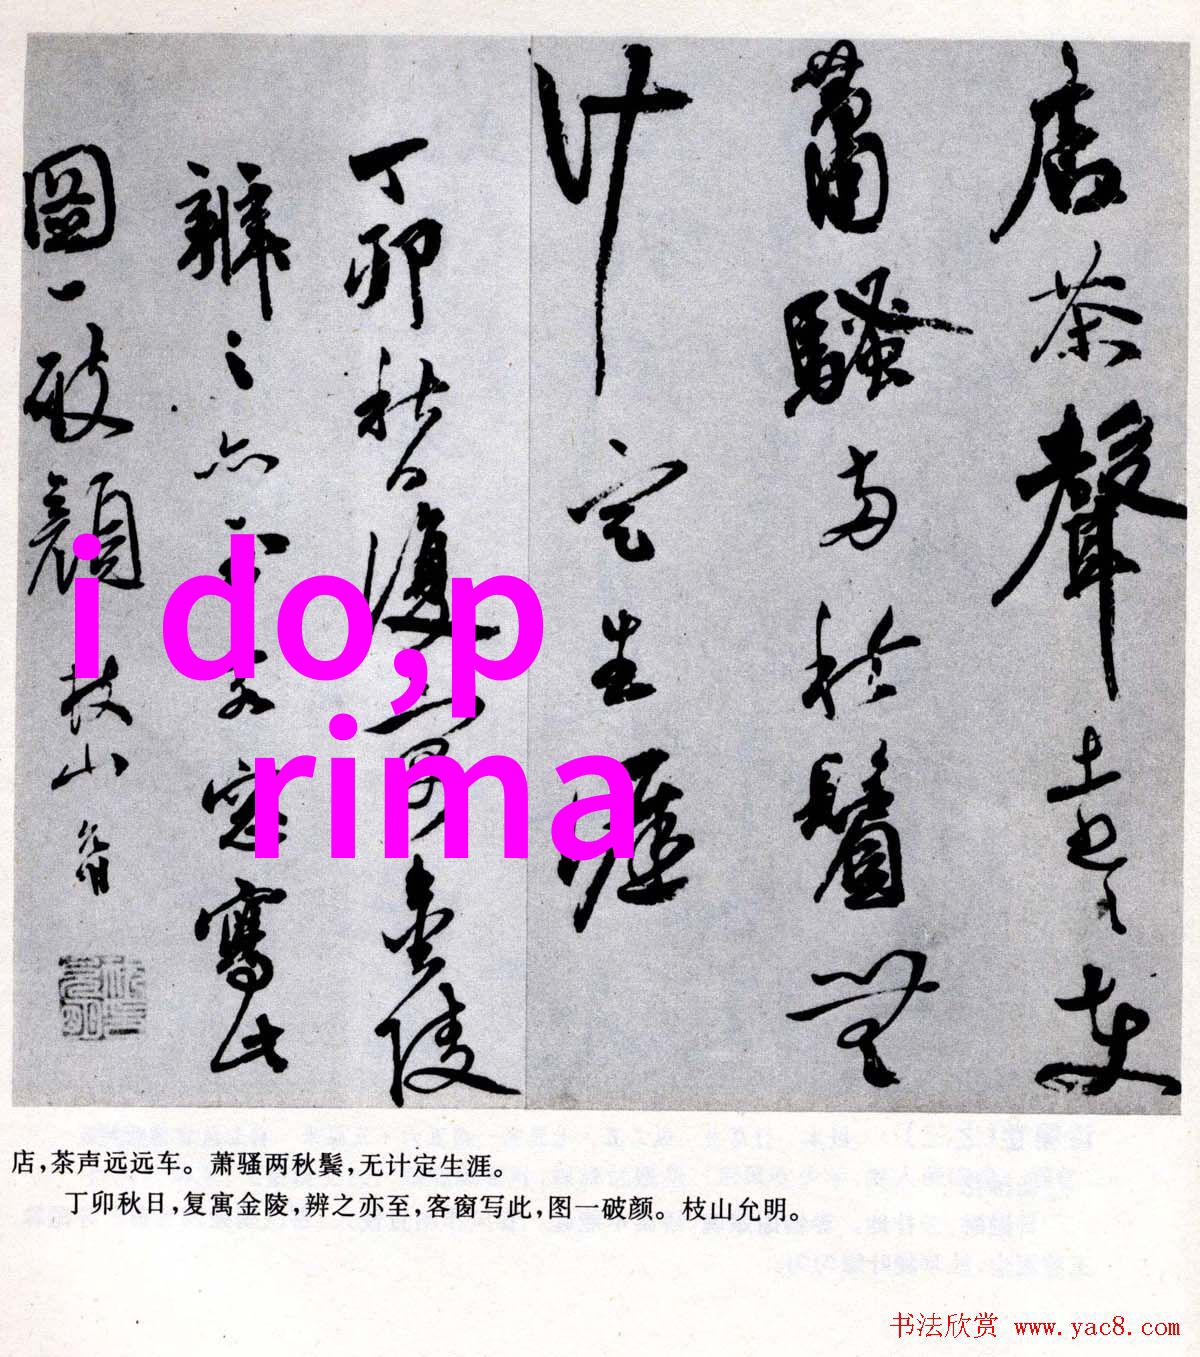 店茶聲遠遠車
蕭騷兩秋鬢無
計定生涯
丁卯秋日復寓金陵
辨之亦至客窓寫此
圖一破顏枝山允明
i do,p
rima
店，茶声远远车。萧骚两秋鬓，无计定生涯。
丁卯秋日，复寓金陵，辨之亦至，客窗写此，图一破颜。枝山允明。
书法欣赏 www.yac8.com